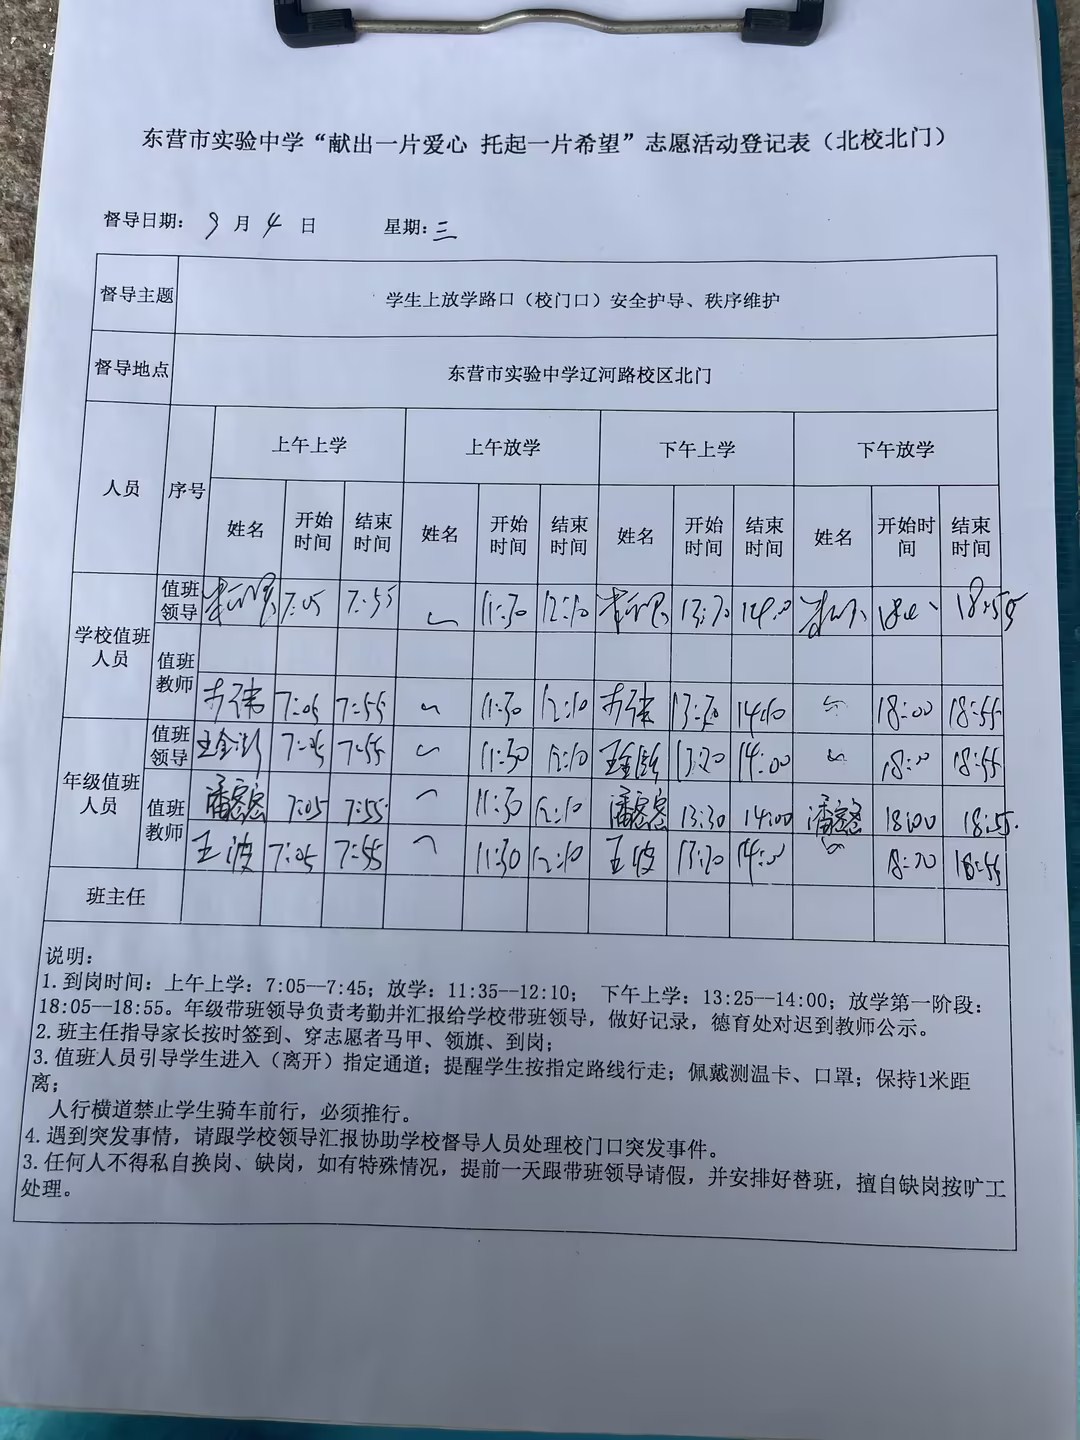 东营市实验中学“献出一片爱心 托起一片希望”志愿活动登记表（北校北门）
督导日期: 9 月 4 日 星期: 三
督导主题 学生上放学路口（校门口）安全护导、秩序维护
督导地点 东营市实验中学辽河路校区北门
人员 序号 上午上学 上午放学 下午上学 下午放学
姓名 开始时间 结束时间 姓名 开始时间 结束时间 姓名 开始时间 结束时间 姓名 开始时间 结束时间
学校值班人员 值班领导 7:05 7:55 11:30 12:10 13:30 18:55
值班教师
7:05 7:55 11:30 12:10 13:30 14:10 18:00 18:55
年级值班人员 值班领导 7:05 7:55 11:30 12:10 13:20 14:00 18:00 18:55
值班教师 潘密密 7:05 7:55 11:30 12:10 潘密密 13:30 14:00 潘密密 18:00 18:55.
王波 7:05 7:55 11:30 12:10 王波 13:20 14:00 18:20 18:55
班主任
说明:
1. 到岗时间: 上午上学: 7:05--7:45; 放学: 11:35--12:10; 下午上学: 13:25--14:00; 放学第一阶段:
18:05--18:55。年级带班领导负责考勤并汇报给学校带班领导, 做好记录, 德育处对迟到教师公示。
2. 班主任指导家长按时签到、穿志愿者马甲、领旗、到岗;
3. 值班人员引导学生进入（离开）指定通道; 提醒学生按指定路线行走; 佩戴测温卡、口罩; 保持1米距
离;
人行横道禁止学生骑车前行, 必须推行。
4. 遇到突发事情, 请跟学校领导汇报协助学校督导人员处理校门口突发事件。
3. 任何人不得私自换岗、缺岗, 如有特殊情况, 提前一天跟带班领导请假, 并安排好替班, 擅自缺岗按旷工
处理。